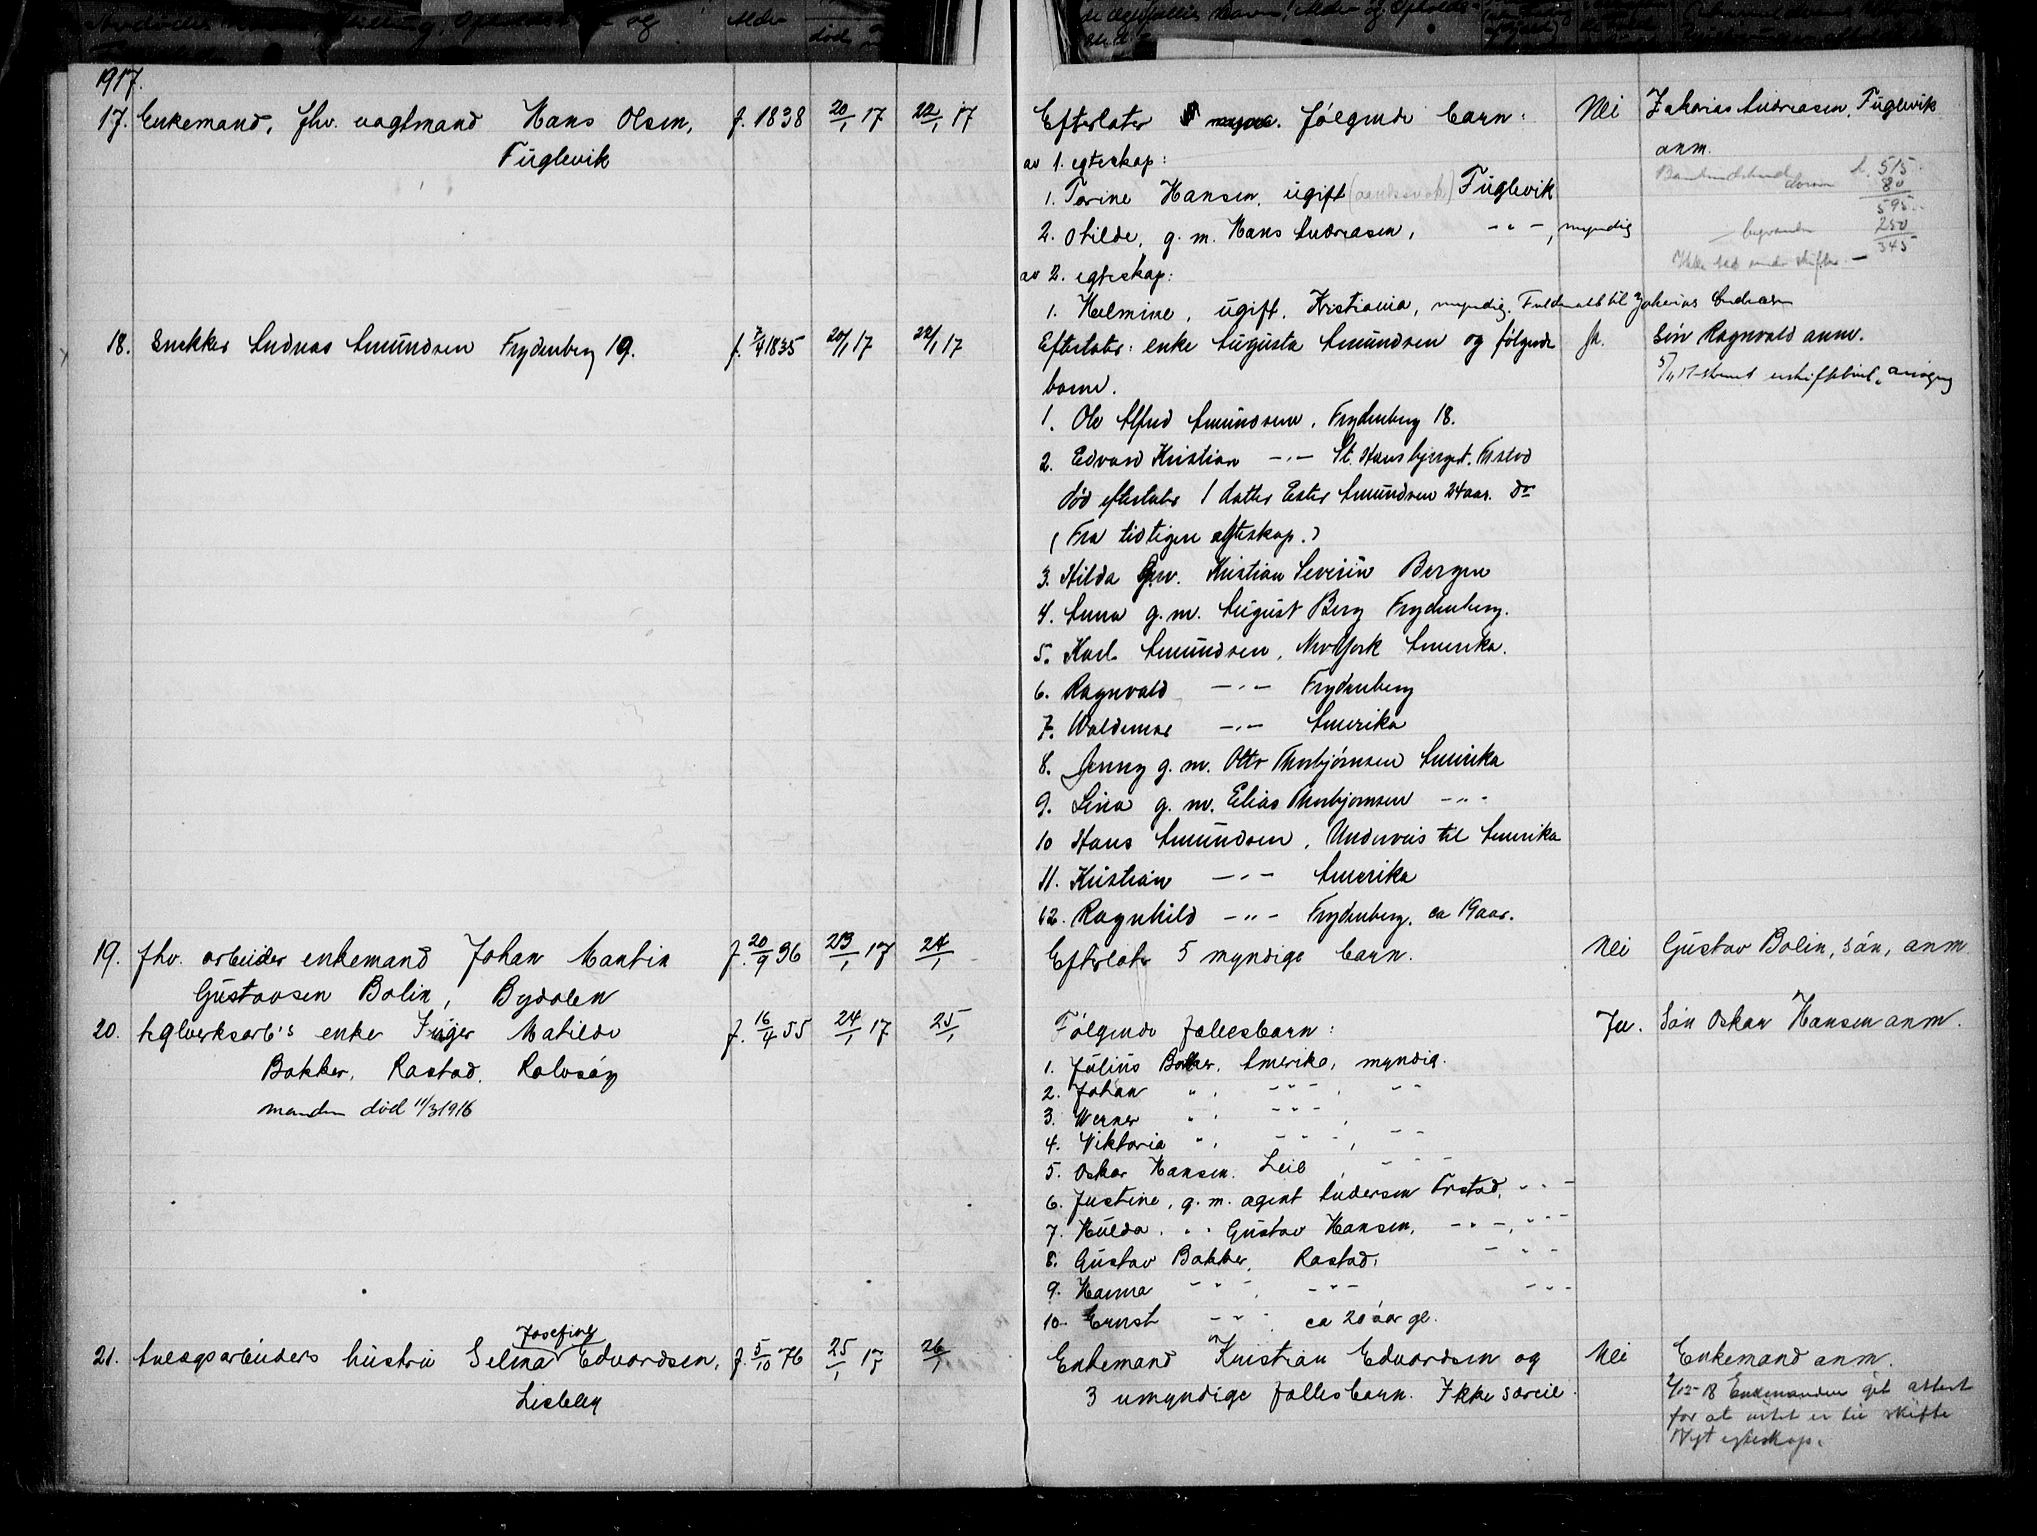 1917.
17. Enkemand, fhv. vagtmand Hans Olsen, f. 1838 20/1 17 22/1 17
Fuglevik
Efterlater følgende barn: Nei Zakarias Andreasen, Fuglevik
anm.
av 1. egteskap:
515
80
1. Torine Hansen, ugift Fuglevik
595
2. Otilde, g. m. Hans Andreasen, -"-, myndig
250
345
av 2. egteskap:
1. Helmine, ugift, Kristiania, myndig. Fuldmakt til Zakarias Andreasen
18. Snekker Andreas Amundsen Frydenberg 19. f. 7/4 1835 20/1 17 22/1 17
Efterlater: enke Augusta Amundsen og følgende Ja. Søn Ragnvald anm.
barn.
1. Ole Alfred Amundsen, Frydenberg 18.
2. Edvard Kristian -"- St. Hansbjerget. Frstad
død efterlater 1 datter Ester Amundsen 24 aar. do
(Fra tidligere egteskap.)
3. Hilda g. m. Kristian Severin Bergen
4. Anna g. m. August Berg Frydenberg.
5. Karl Amundsen, New York Amerika.
6. Ragnvald -"- Frydenberg
7. Waldemar -"- Amerika
8. Jenny g. m. Otto Thorbjørnsen Amerika
9. Lina g. m. Elias Thorbjørnsen -"-
10 Hans Amundsen, Underveis til Amerika
11. Kristian -"- Amerika
12. Ragnhild -"- Frydenberg. ca 19 aar.
19. fhv. arbeider enkemand Johan Martin f. 20/9 36 23/1 17 24/1
Gustavsen Bolin, Bydalen
Efterlater 5 myndige barn. Nei Gustav Bolin, søn, anm.
20. teglverksarb's enke Inger Matilde f. 16/4 55 24/1 17 25/1
Bakker, Rostad, Rolvsøy
manden død 11/3 1916
Følgende fællesbarn: Ja. Søn Oskar Hansen anm.
1. Julius Bakker, Amerika, myndig.
2. Johan " , -"- , -"-
3. Werner " , -"- ,
4. Viktoria " , -"- , -"-
5. Oskar Hansen. Leie , -"-
6. Justine, g. m. agent Andersen Frstad, -"-
7. Hulda. " " Gustav Hansen, -"-, -"-
8. Gustav Bakker, Rostad, -"-
9. Hanna -"- , -"- -"-
10. Ernst -"- ca 20 aar gl.
21. Anlegsarbeiders hustru Selma Josefine Edvardsen, f. 5/10 76 25/1 17 26/1
Lisleby
Enkemand Kristian Edvardsen og Nei Enkemand anm.
3 umyndige fællesbarn. Ikke særeie.
2/12-18 Enkemanden git attest
for at intet er til skifte
Nyt egteskap.